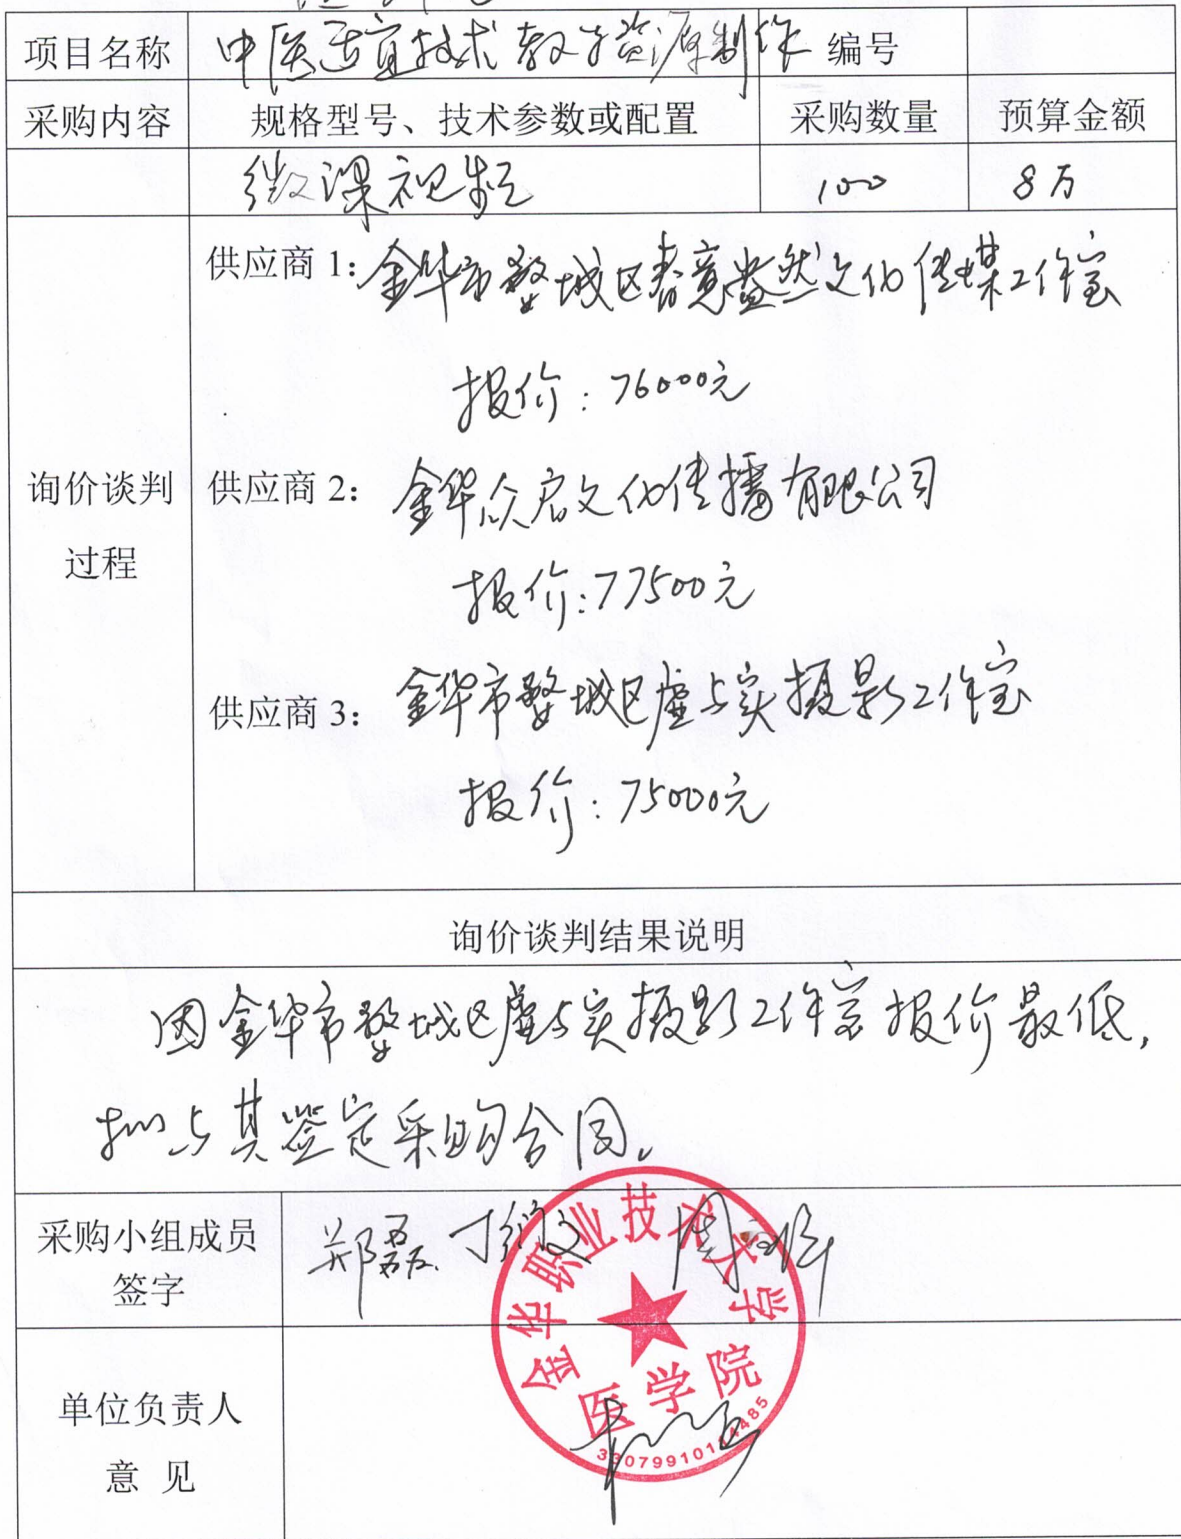 项目名称 中医适宜技术教学资源制作 编号
采购内容 规格型号、技术参数或配置 采购数量 预算金额
微课视频 100 8万
供应商 1: 金华市婺城区春意盎然文化传媒工作室
报价: 76000元
询价谈判过程
供应商 2: 金华众启文化传播有限公司
报价: 77500元
供应商 3: 金华市婺城区虚与实摄影工作室
报价: 75000元
询价谈判结果说明
因金华市婺城区虚与实摄影工作室报价最低,
拟与其签定采购合同。
采购小组成员
签字
郑磊
金华职业技术大学
医学院
单位负责人
意 见